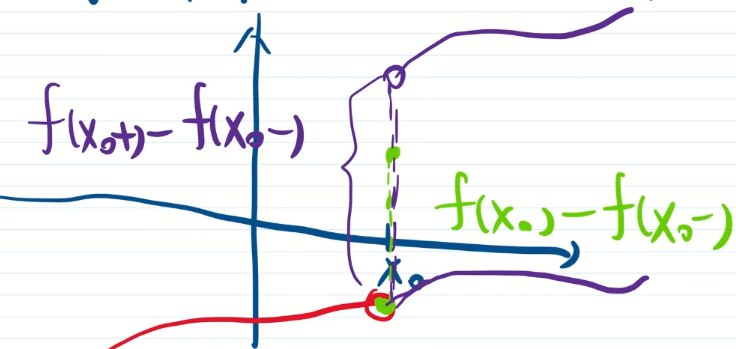 f(x₀+)-f(x₀-)
f(x₀)-f(x₀-)
x₀